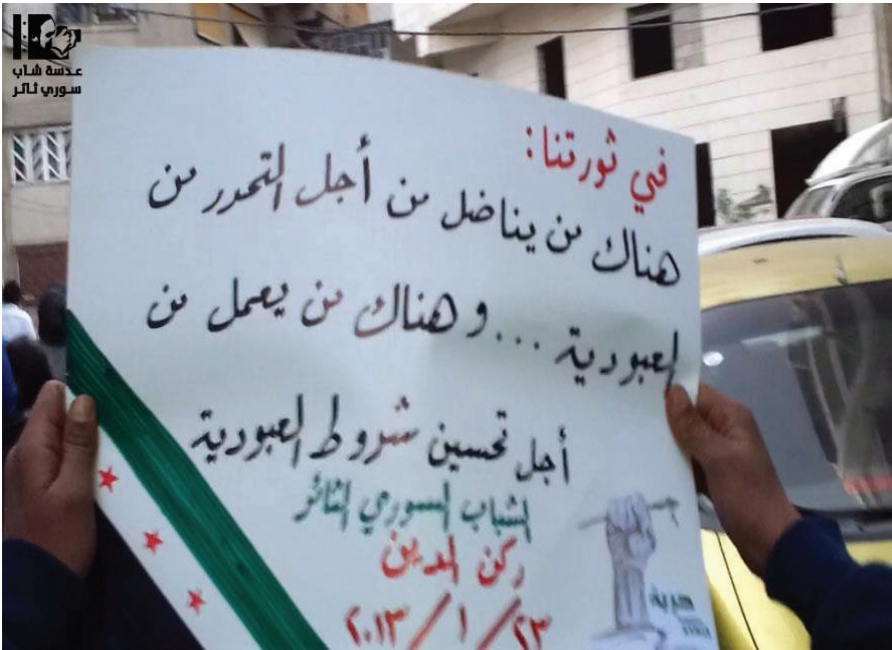 عدسة شاب
سوري ثائر
في ثورتنا:
هناك من يناضل من أجل التحرر من
العبودية ... و هناك من يعمل من
أجل تحسين شروط العبودية
الشباب السوري الثائر
ركن الدين
٢٣/١/٢٠١٣
حرية